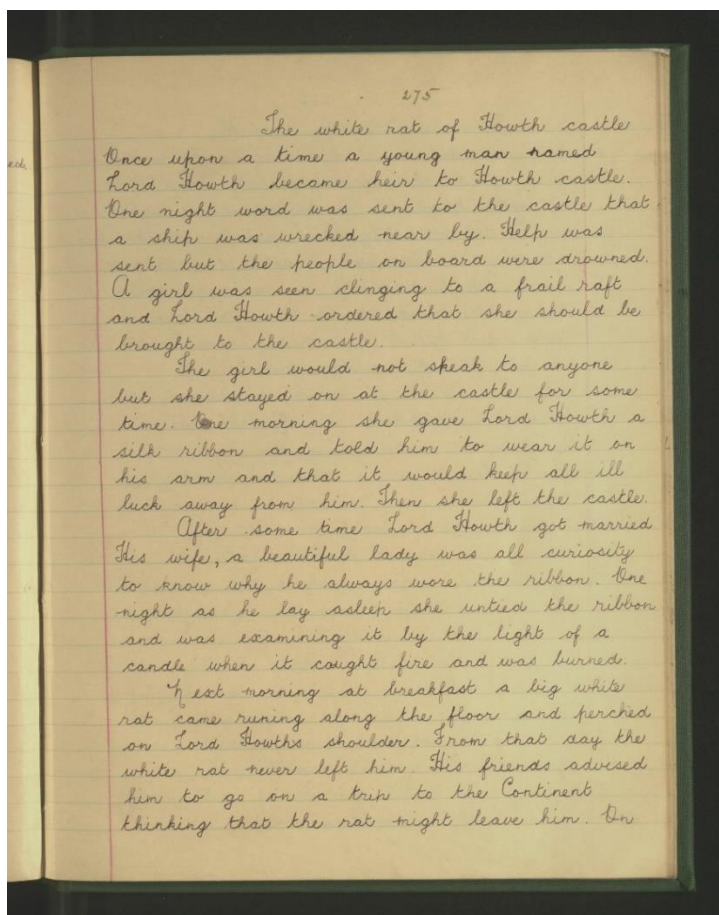 275
The white rat of Howth castle
Once upon a time a young man named
Lord Howth became heir to Howth castle.
One night word was sent to the castle that
a ship was wrecked near by. Help was
sent but the people on board were drowned.
A girl was seen clinging to a frail raft
and Lord Howth ordered that she should be
brought to the castle.
The girl would not speak to anyone
but she stayed on at the castle for some
time. One morning she gave Lord Howth a
silk ribbon and told him to wear it on
his arm and that it would keep all ill
luck away from him. Then she left the castle.
After some time Lord Howth got married
His wife, a beautiful lady was all curiosity
to know why he always wore the ribbon. One
night as he lay asleep she untied the ribbon
and was examining it by the light of a
candle when it caught fire and was burned.
Next morning at breakfast a big white
rat came runing along the floor and perched
on Lord Howths shoulder. From that day the
white rat never left him. His friends advised
him to go on a trip to the Continent
thinking that the rat might leave him. On